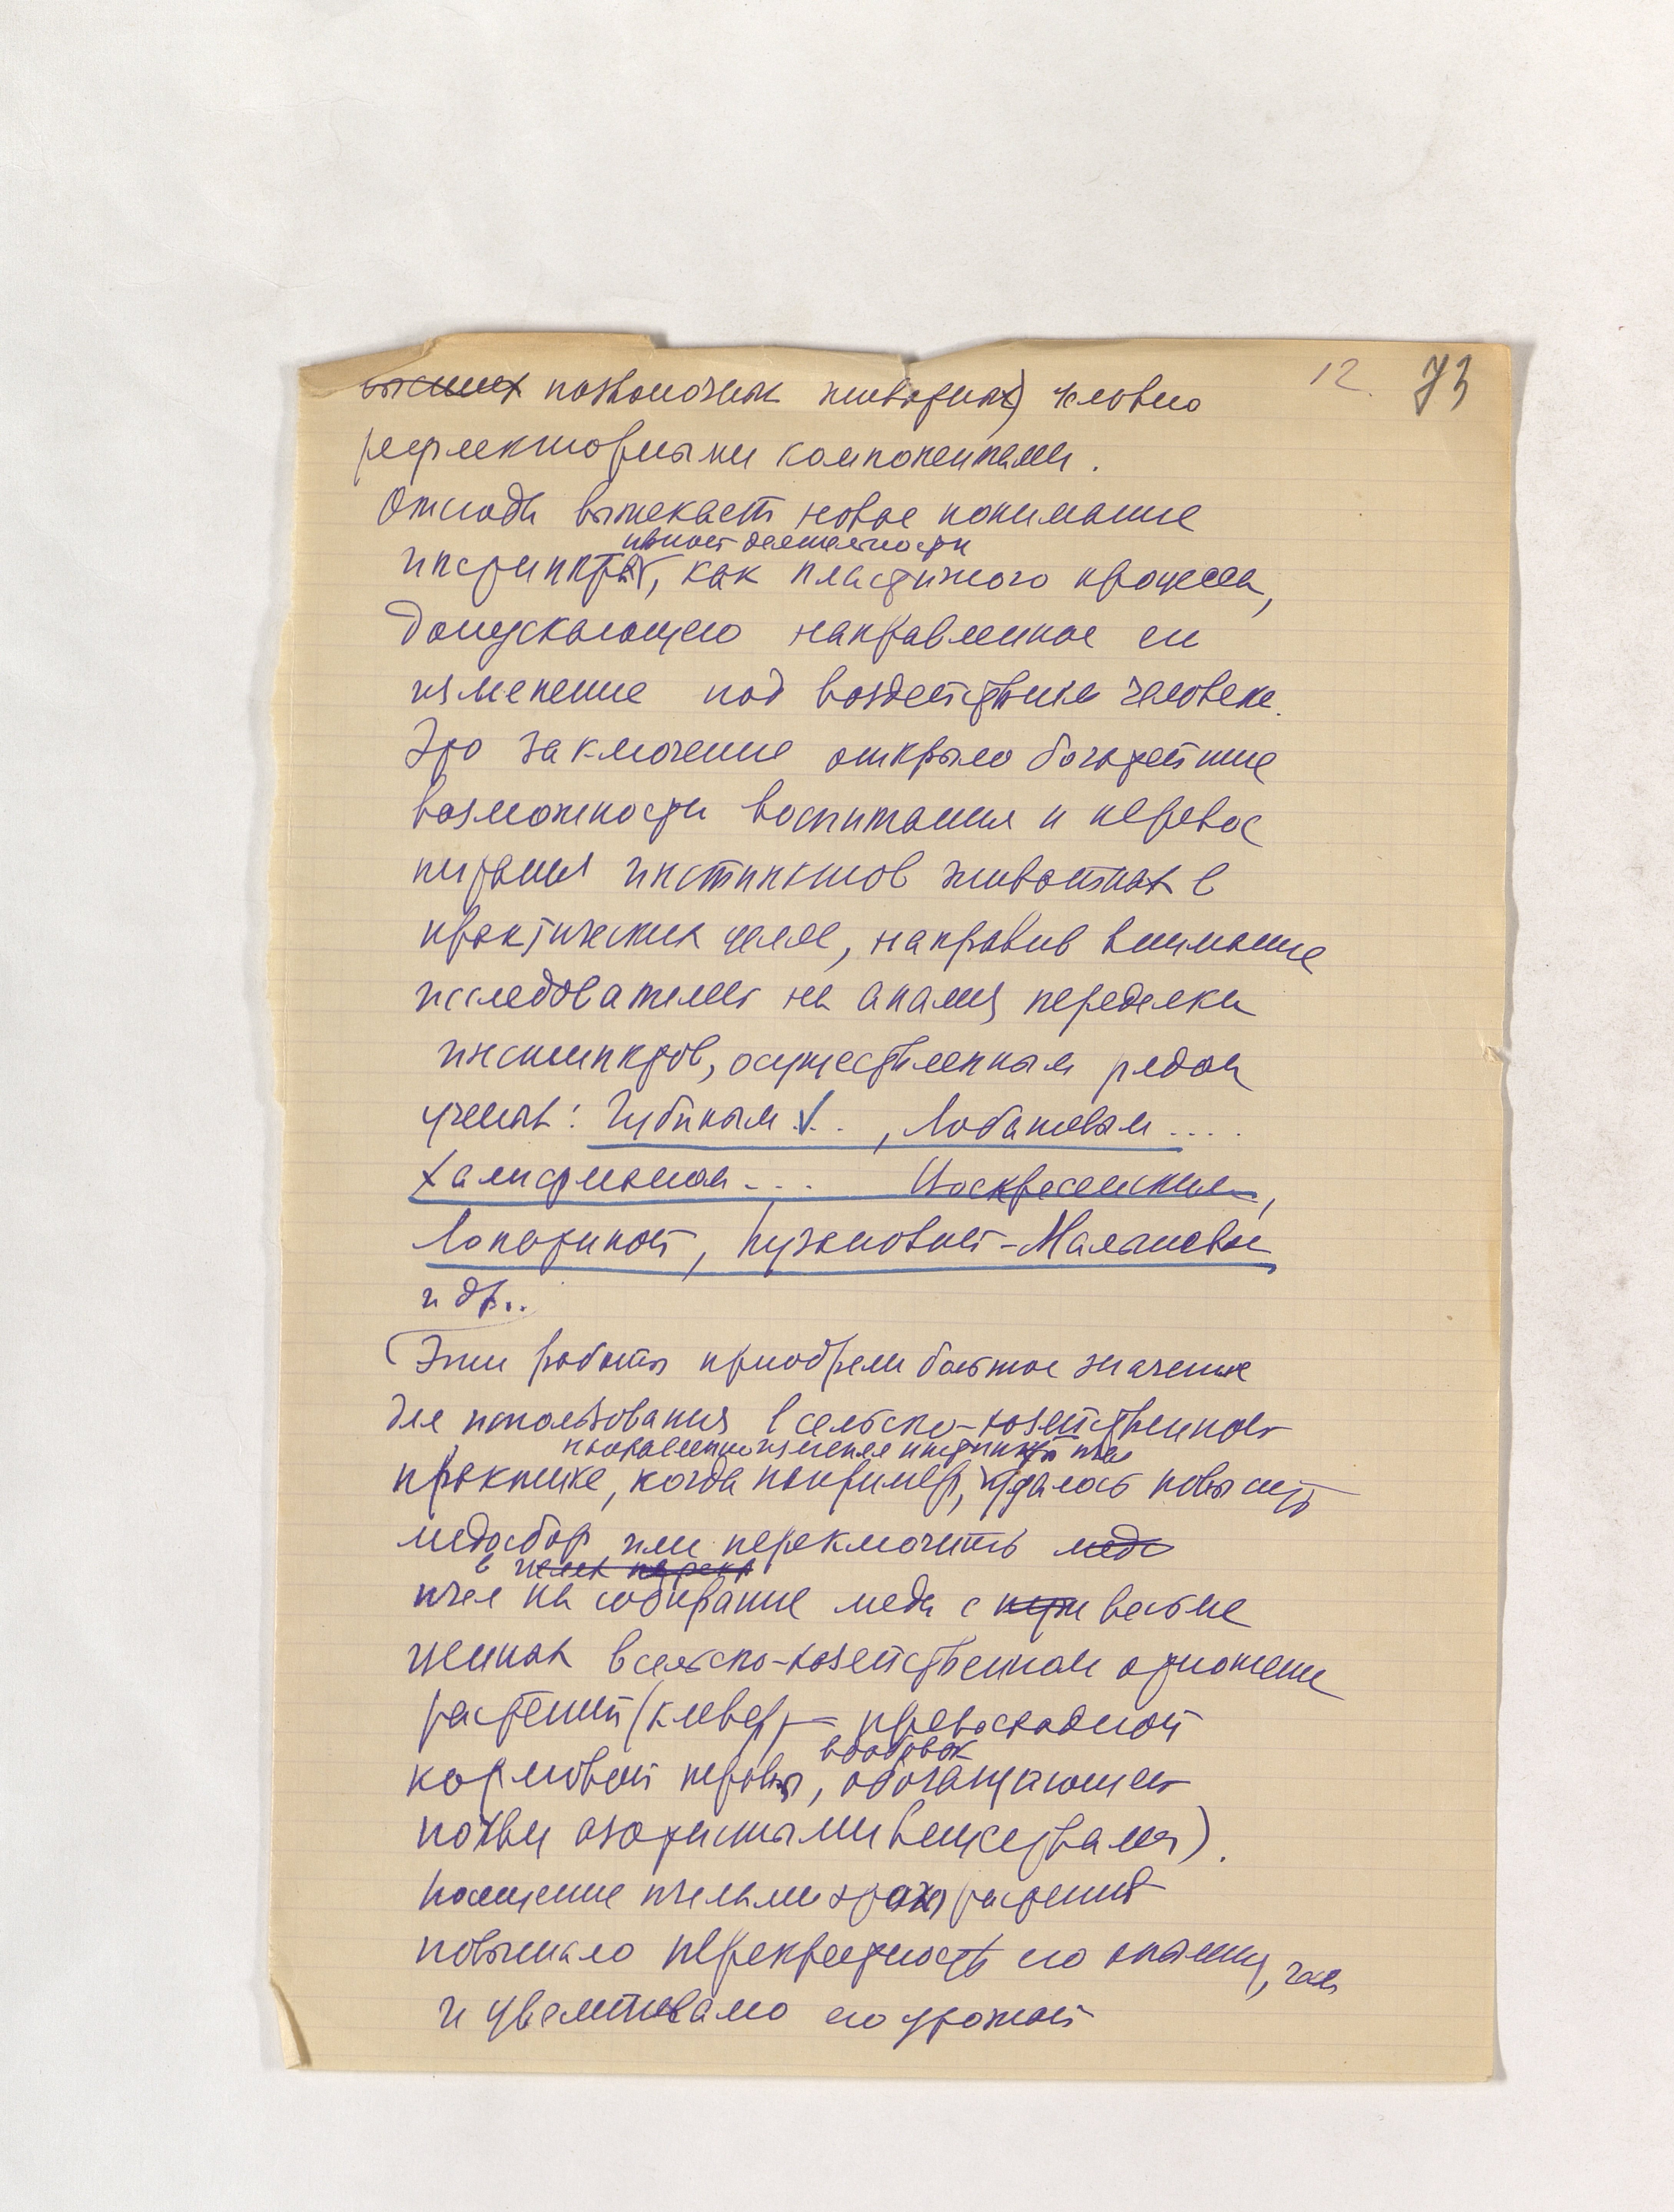 12. 73
высших позвоночных животных) условно
рефлекторными компонентами.
Отсюда вытекает новое понимание
ивной деятельности
инстинкта, как пластичного процесса,
допускающего направленное его
изменение под воздействием человека.
Это заключение открыло богатейшие
возможности воспитания и перевос
питания инстинктов животных в
практических целях, направив внимание
исследователей на анализ переделки
инстинктов, осуществленным рядом
ученых: Губиным ... , Лобашевым ....
Халифманом ... Воскресенским,
Лопатиной, Пузановой-Малышевой
и др..
Эти работы приобрели большое значение
для использования в сельско-хозяйственной
направленно изменяя инстинкты пчел
практике, когда например, удалось повысить
медосбор или переключить медо
в целях перекл
пчел на собирание меда с весьма
ценных в сельско-хозяйственном отношении
растений (клевер – превосходной
кормовой травы, обогащающей
почвы азотистыми веществами).
Посещение пчелами этого растения
повышало перекрестность его опыления, чем
и увеличивало его урожай